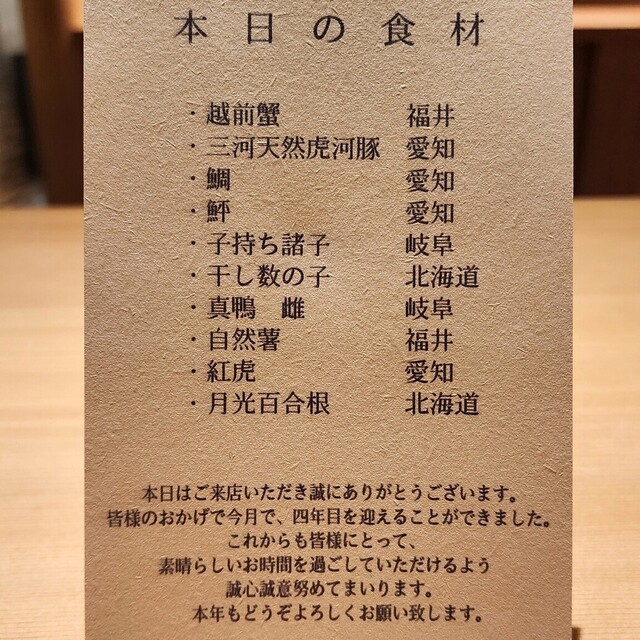 本日の食材
・越前蟹 福井
・三河天然虎河豚 愛知
・鯛 愛知
・鮃 愛知
・子持ち諸子 岐阜
・干し数の子 北海道
・真鴨 雌 岐阜
・自然薯 福井
・紅虎 愛知
・月光百合根 北海道
本日はご来店いただき誠にありがとうございます。
皆様のおかげで今月で、四年目を迎えることができました。
これからも皆様にとって、
素晴らしいお時間を過ごしていただけるよう
誠心誠意努めてまいります。
本年もどうぞよろしくお願い致します。